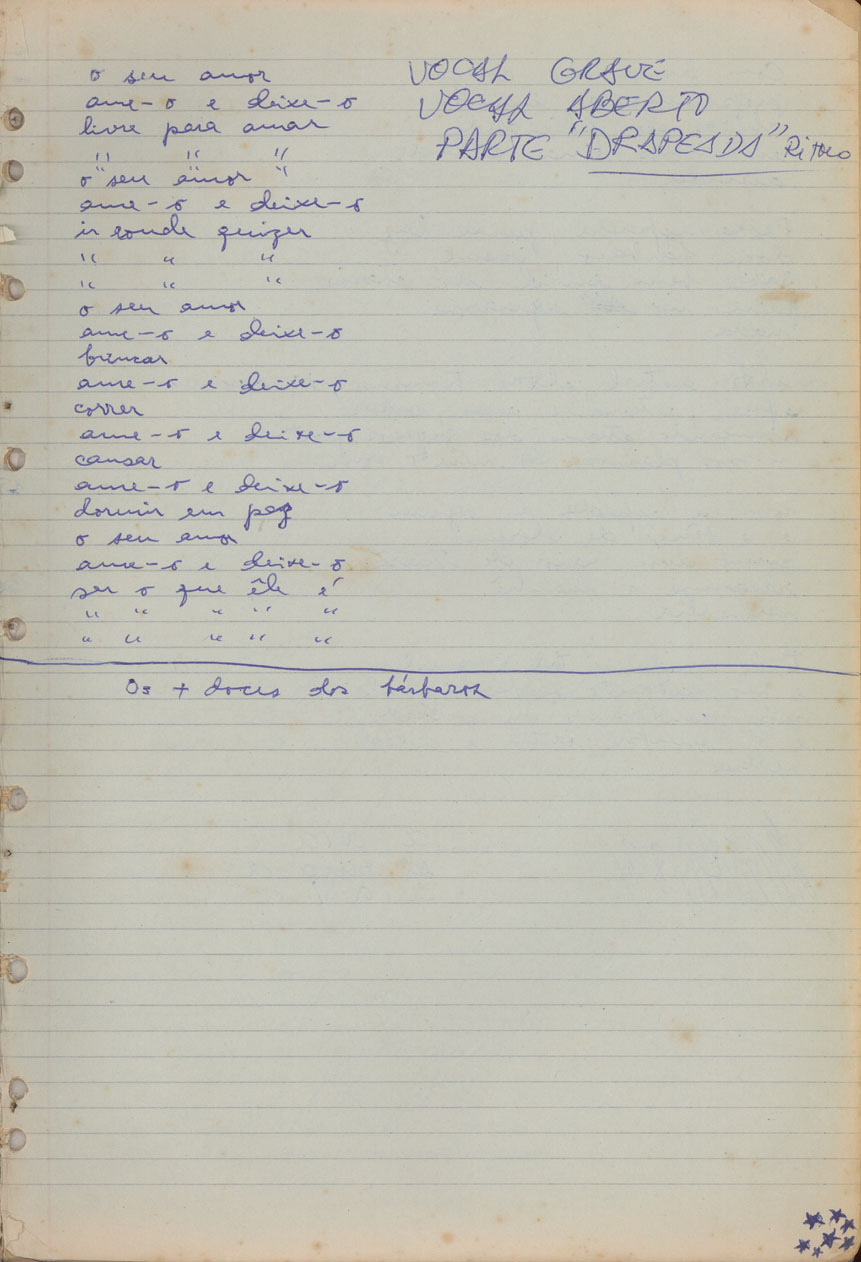 o seu amor
ame-o e deixe-o
livre para amar
" " "
o seu amor
ame-o e deixe-o
ir aonde quizer
" " "
" " "
o seu amor
ame-o e deixe-o
brincar
ame-o e deixe-o
correr
ame-o e deixe-o
cansar
ame-o e deixe-o
dormir em paz
o seu amor
ame-o e deixe-o
ser o que êle é
" " " " "
" " " " "
Os + doces dos bárbaros
VOCAL GRAVE
VOCAL ABERTO
PARTE "DRAPEADA"